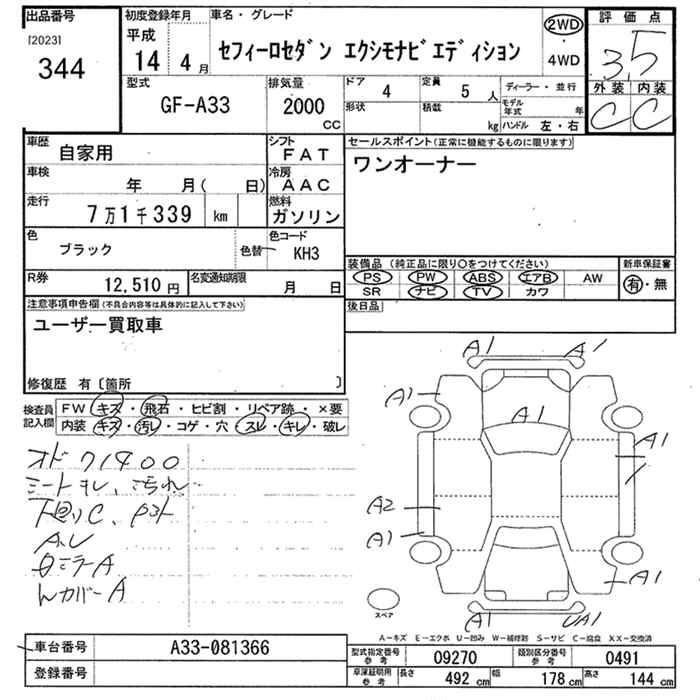 出品番号
[2023]
344
初度登録年月
平成
14 4 月
車名・グレード
セフィーロセダン エクシモナビエディション
2WD
・
4WD
評価点
3,5
外装 内装
C C
型式
GF-A33
排気量
2000
CC
ドア 4
定員 5 人
形状
積載 kg
ディーラー・並行
モデル年式 年
ハンドル 左・右
車歴
自家用
シフト
FAT
車検
年 月( 日)
冷房
AAC
走行
7万1千339 km
燃料
ガソリン
セールスポイント(正常に機能するものに限ります)
ワンオーナー
色
ブラック
色替
色コード
KH3
装備品 (純正品に限り○をつけてください)
PS PW ABS エアB AW
SR ナビ TV カワ
新車保証書
有・無
R券
12,510 円
名変通知期限
月 日
後日品
注意事項申告欄(不具合内容等は具体的に記入して下さい)
ユーザー買取車
修復歴 有〔箇所 〕
検査員記入欄
FW キズ・飛石・ヒビ割・リペア跡・×要
内装 キズ・汚レ・コゲ・穴・スレ・キレ・破レ
オド71400
シートキレ、汚れ
下廻りC、
A.U
ミラーA
カバーA
A1 A1
A1
A1
A1
A2
A1
A1
A1 UA1
スペア
A-キズ E-エクボ U-凹み W-補修跡 S-サビ C-腐食 XX-交換済
車台番号
A33-081366
登録番号
型式指定番号
参考
09270
類別区分番号
参考
0491
車庫証明用
参考
長さ 492 cm
幅 178 cm
高さ 144 cm